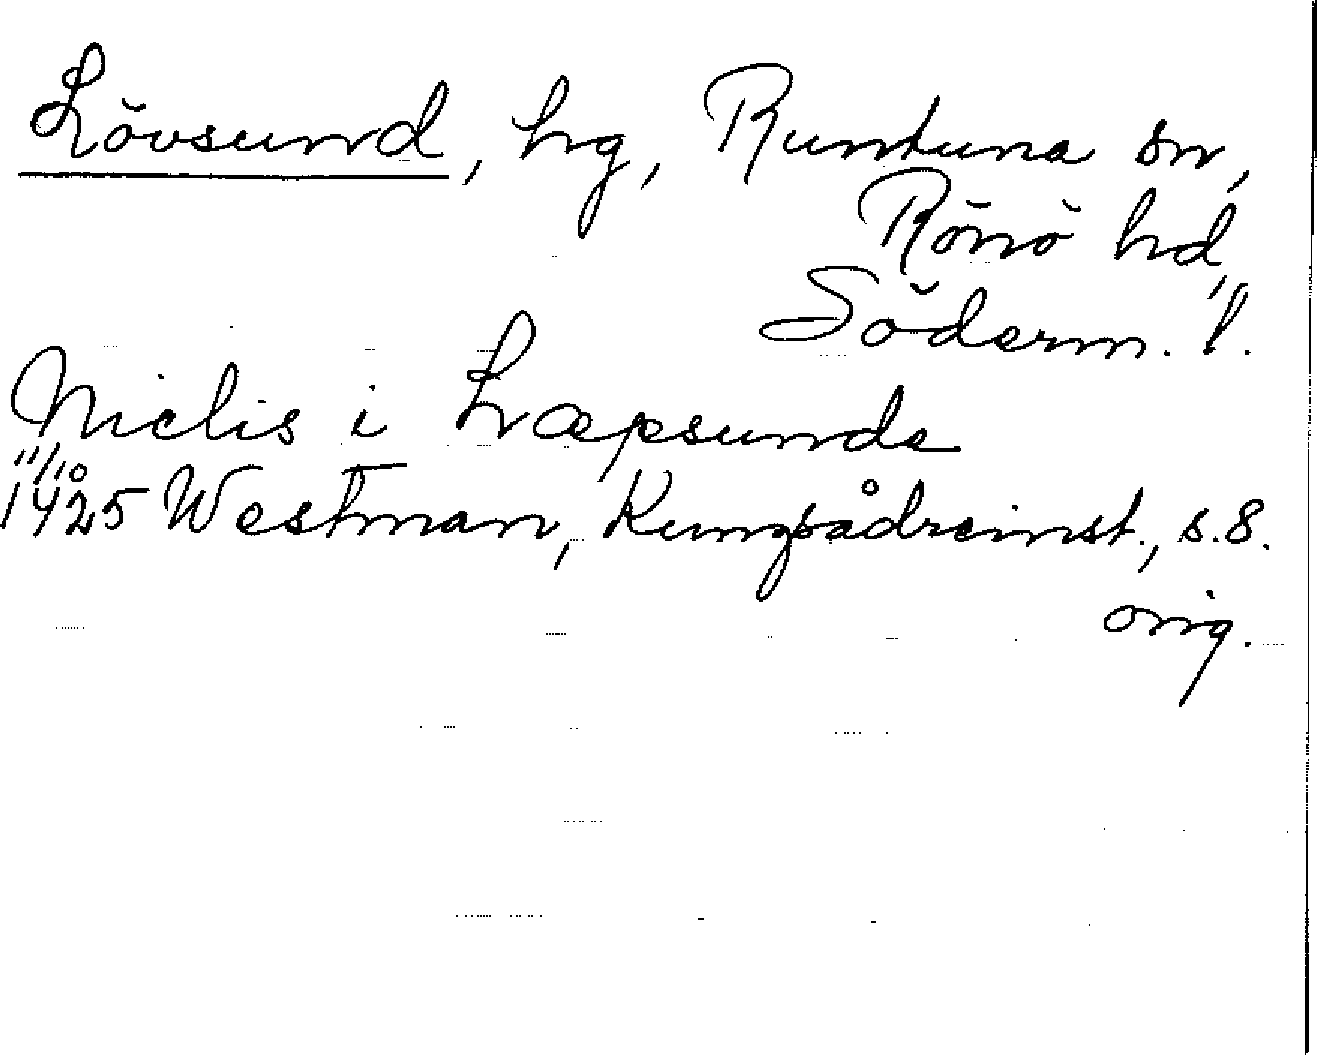 Lövsund, hg, Runtuna sn,
Rönö hd,
Söderm. l.
Niclis i Læpsunde
11/10
1425 Westman, Kungsådreinst., s. 8.
orig.